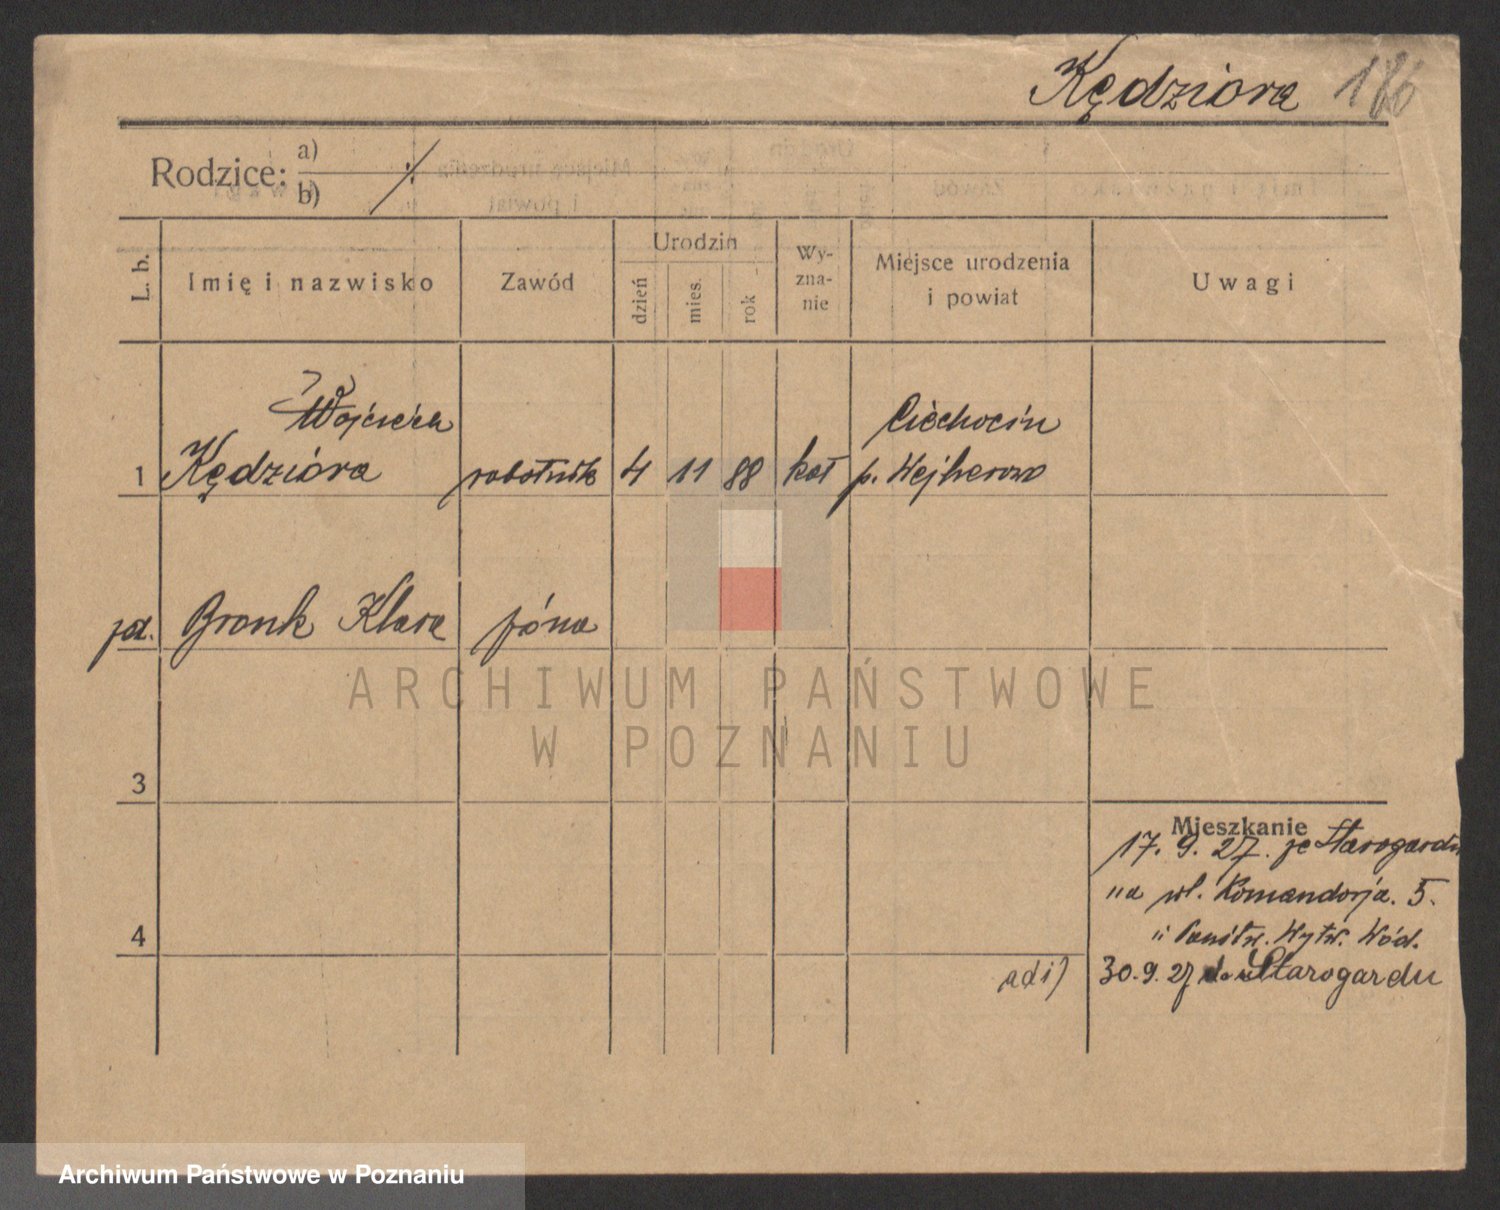 Kędziora 186
Rodzice: a) ./.
b)
L. b.
Imię i nazwisko
Zawód
Urodzin
dzień
mies.
rok
Wy-
zna-
nie
Miejsce urodzenia
i powiat
Uwagi
Wojciech Ciechocin
1 Kędziora robotnik 4 11 88 kat p. Wejherowo
Bronk Klara żóna
ARCHIWUM PAŃSTWOWE
W POZNANIU
3
Mieszkanie
17. 9. 27. ze Starogardu
na wł. Komandorja. 5.
Wytw. Wód.
4
30. 9. 27 do Starogardu
Archiwum Państwowe w Poznaniu